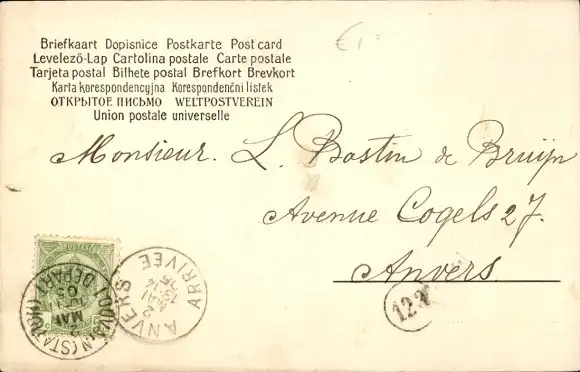 € 1=
Briefkaart Dopisnice Postkarte Post card
Levelező-Lap Cartolina postale Carte postale
Tarjeta postal Bilhete postal Brefkort Brevkort
Karta korespondencyjna Korespondenční lístek
ОТКРЫТОЕ ПИСЬМО WELTPOSTVEREIN
Union postale universelle
Monsieur. L. Bastin de Bruijn
Avenue Cogels 27.
Anvers.
POSTES
ANVERS ARRIVÉE
2 MAI
(STATION) DEPART
2 MAI